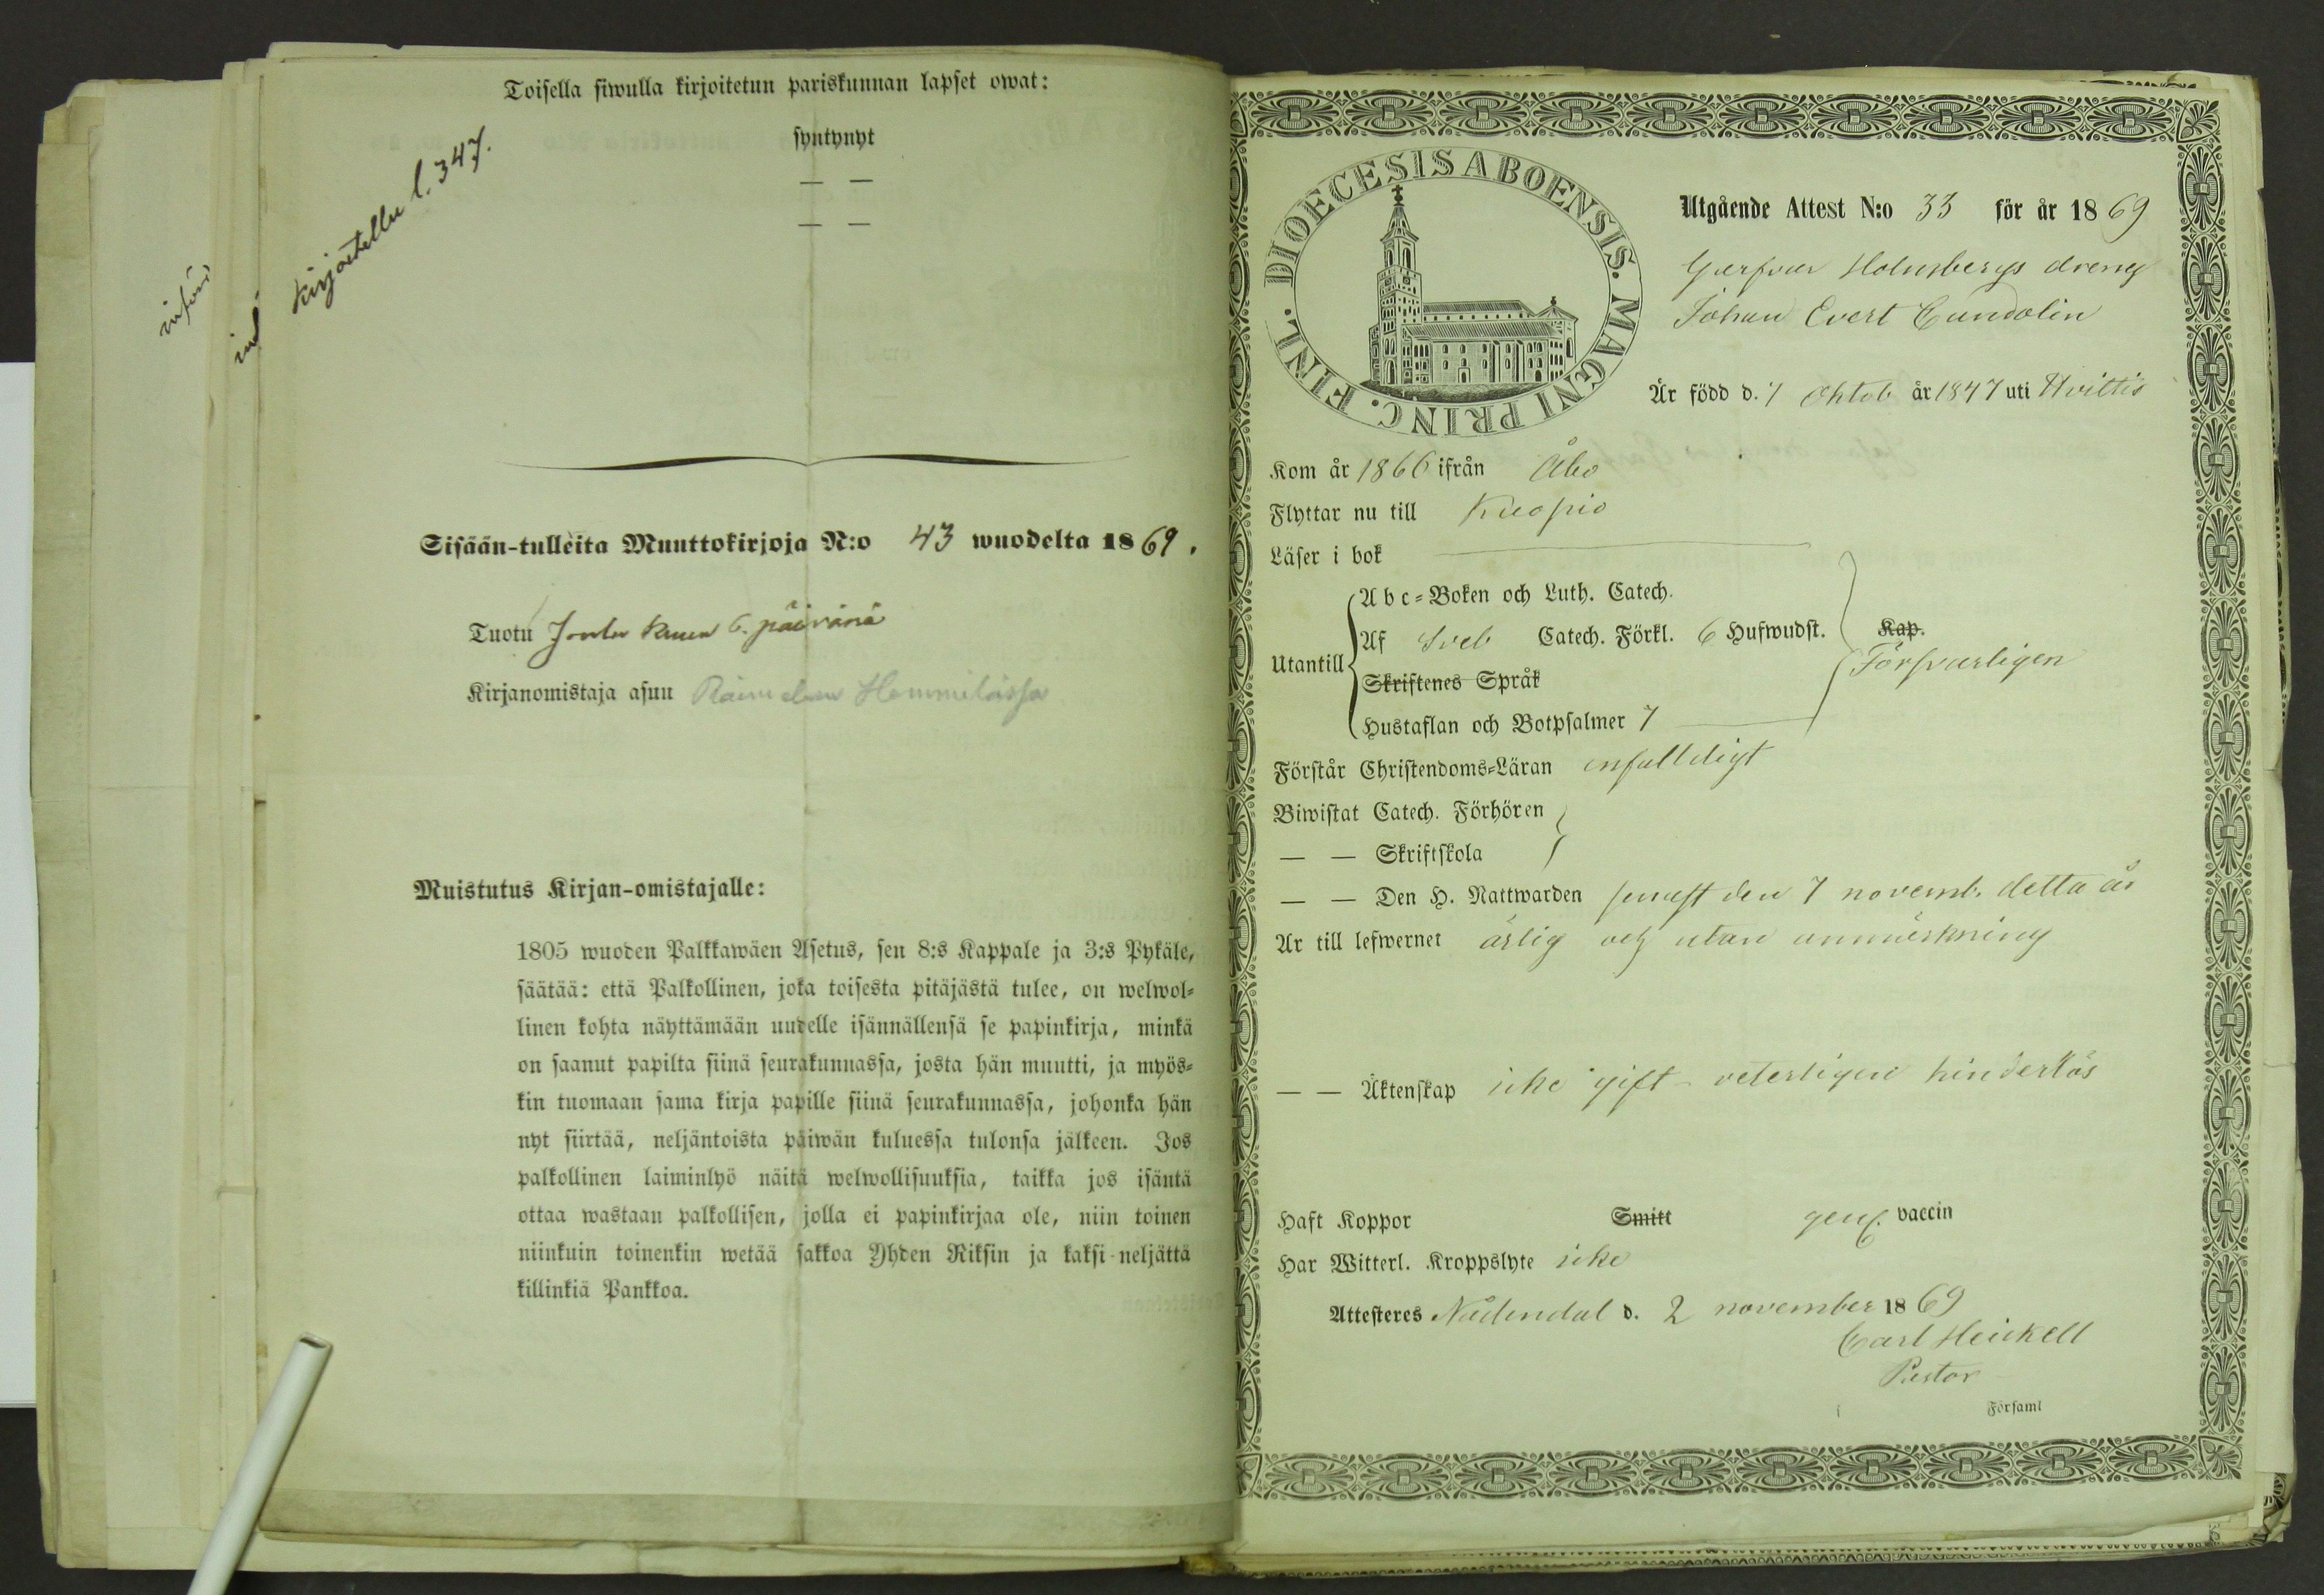 Toisella siwulla kirjoitetun pariskunnan lapset owat:
syntynyt
— —
— —
Kirjoitettu l. 347.
Sisään-tulleita Muuttokirjoja N:o 43 wuodelta 1869.
Tuotu Joulu kuun 6. päivänä
Kirjanomistaja asuu
Muistutus Kirjan-omistajalle:
1805 wuoden Palkkawäen Asetus, sen 8:s Kappale ja 3:s Pykäle,
säätää: että Palkollinen, joka toisesta pitäjästä tulee, on welwol-
linen kohta näyttämään uudelle isännällensä se papinkirja, minkä
on saanut papilta siinä seurakunnassa, josta hän muutti, ja myös-
kin tuomaan sama kirja papille siinä seurakunnassa, johonka hän
nyt siirtää, neljäntoista päiwän kuluessa tulonsa jälkeen. Jos
palkollinen laiminlyö näitä welwollisuuksia, taikka jos isäntä
ottaa wastaan palkollisen, jolla ei papinkirjaa ole, niin toinen
niinkuin toinenkin wetää sakkoa Yhden Riksin ja kaksi neljättä
killinkiä Pankkoa.
DIOECESIS ABOENSIS. MAGNI PRINC. FINL.
Utgående Attest N:o 33 för år 1869
Garfvar Holmbergs dreng
Johan Evert Cundolin
Är född d. 7 Oktob. år 1847 uti Hvittis
Kom år 1866 ifrån Åbo
Flyttar nu till Kuopio
Läser i bok
Utantill
Abc-Boken och Luth. Catech.
Af Sveb Catech. Förkl. 6 Hufwudst.
Kap.
Försvarligen
Skriftenes Språk
Hustaflan och Botpsalmer 7
Förstår Christendoms-Läran enfaldigt
Biwistat Catech. Förhören
— — Skriftskola
— — Den H. Nattwarden senast den 7 novemb. detta år
Är till lefwernet ärlig och utan anmärkning
— — Äktenskap icke gift veterligen hinderlös
Haft Koppor Smitt genom vaccin
Har Witterl. Kroppslyte icke
Attesteres Nådendal d. 2 november 1869
Carl Heickell
Pastor
Församl